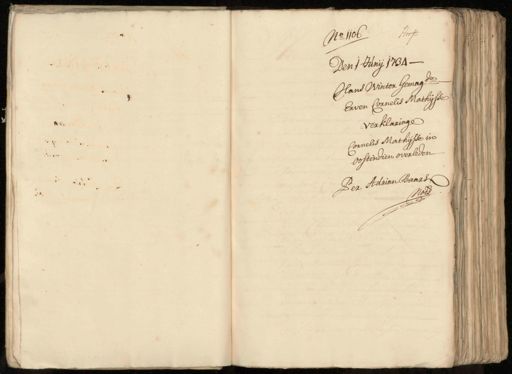 No. 1106
Den 1 Junij 1734
Claas Winter Gemag. de
Erven Cornelis Mathijsse
Verklaringe
Cornelis Mathijsse in
oostindien overleden
Per Adrian Baars
Nots